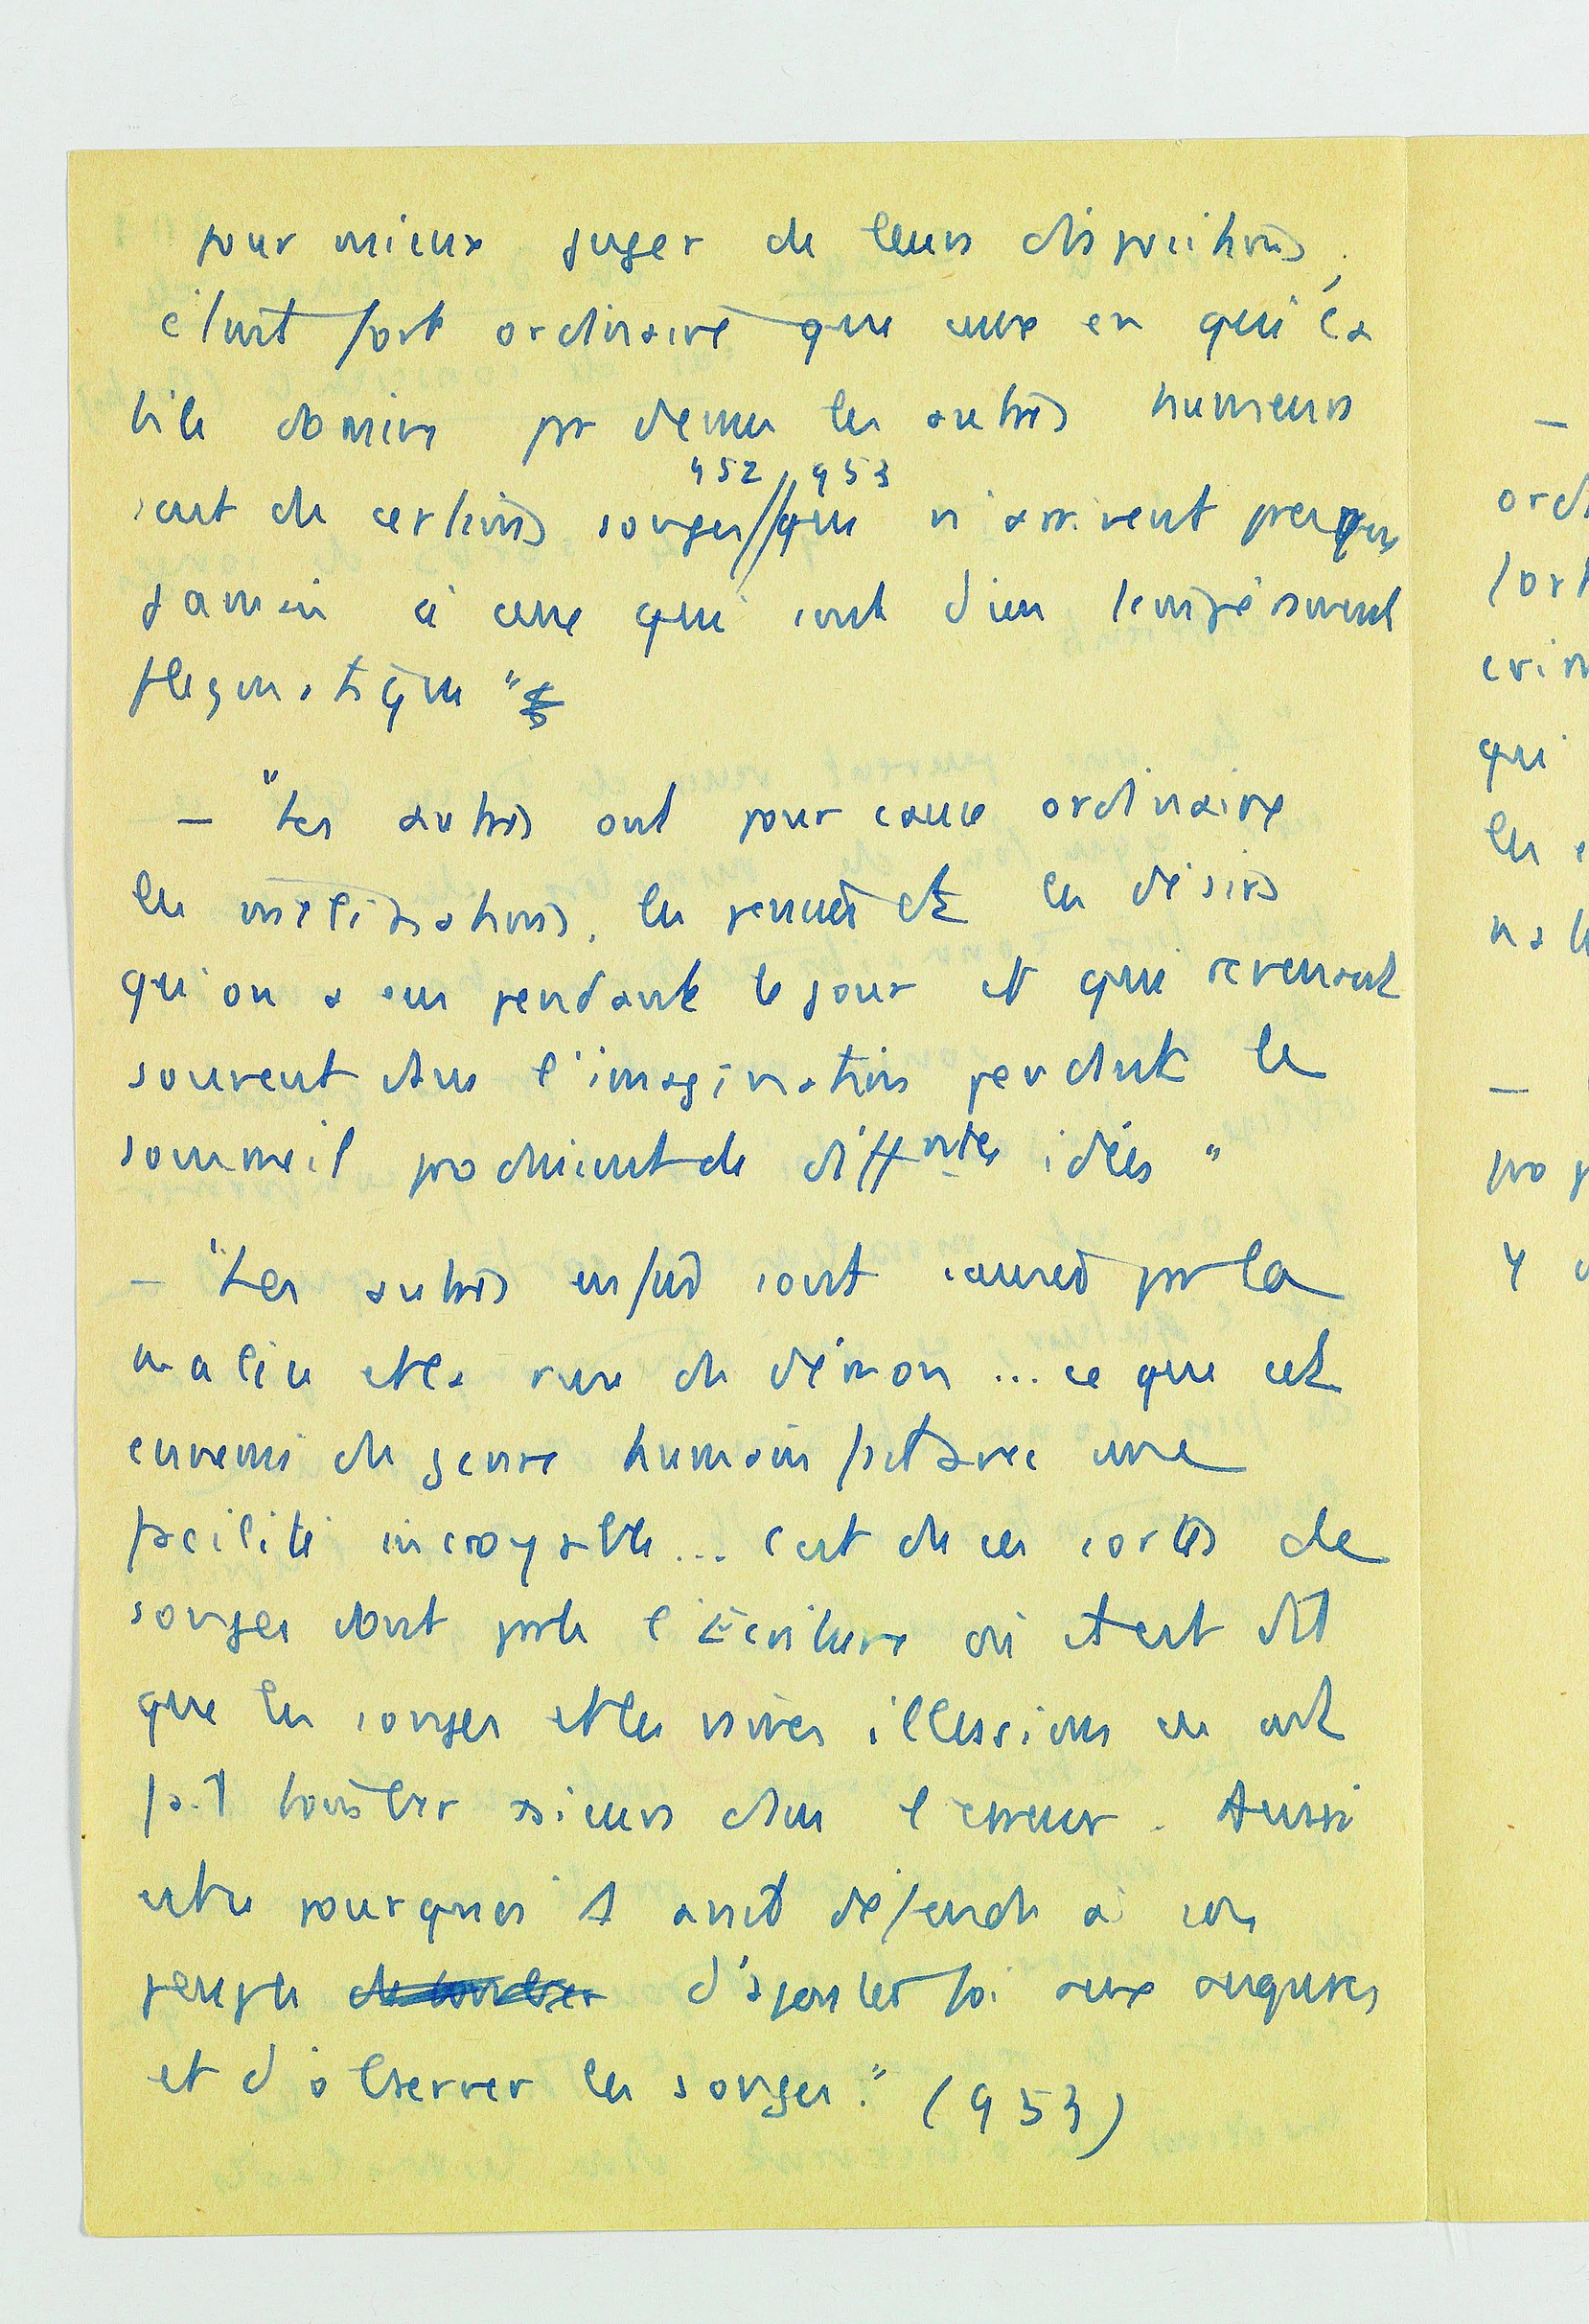 pour mieux juger de leurs dispositions,
c'est fort ordinaire que ceux en qui la
bile domine par dessus les autres humeurs
ont de certains songes // qui n'arrivent presque
952 // 953
jamais à ceux qui sont d'un tempérament
flegmatique "
— "Les autres ont pour cause ordinaire
les méditations, les pensées et les désirs
qu'on a eus pendant le jour et qui revenant
souvent dans l'imagination pendant le
sommeil produisent de diffntes idées "
— "Les autres enfin sont causés par la
malice et la ruse du démon ... ce que cet
ennemi du genre humain fait avec une
facilité incroyable ... c'est de ces sortes de
songes dont parle l'Écriture où il est dit
que les songes et les vaines illusions en ont
fait tomber plusieurs dans l'erreur. Aussi
est-ce pourquoi il avait défendu à son
peuple d'ajouter foi aux augures
et d'observer les songes." (953)
—
ord
fort
crim
qui
les
na
—
pro p
y